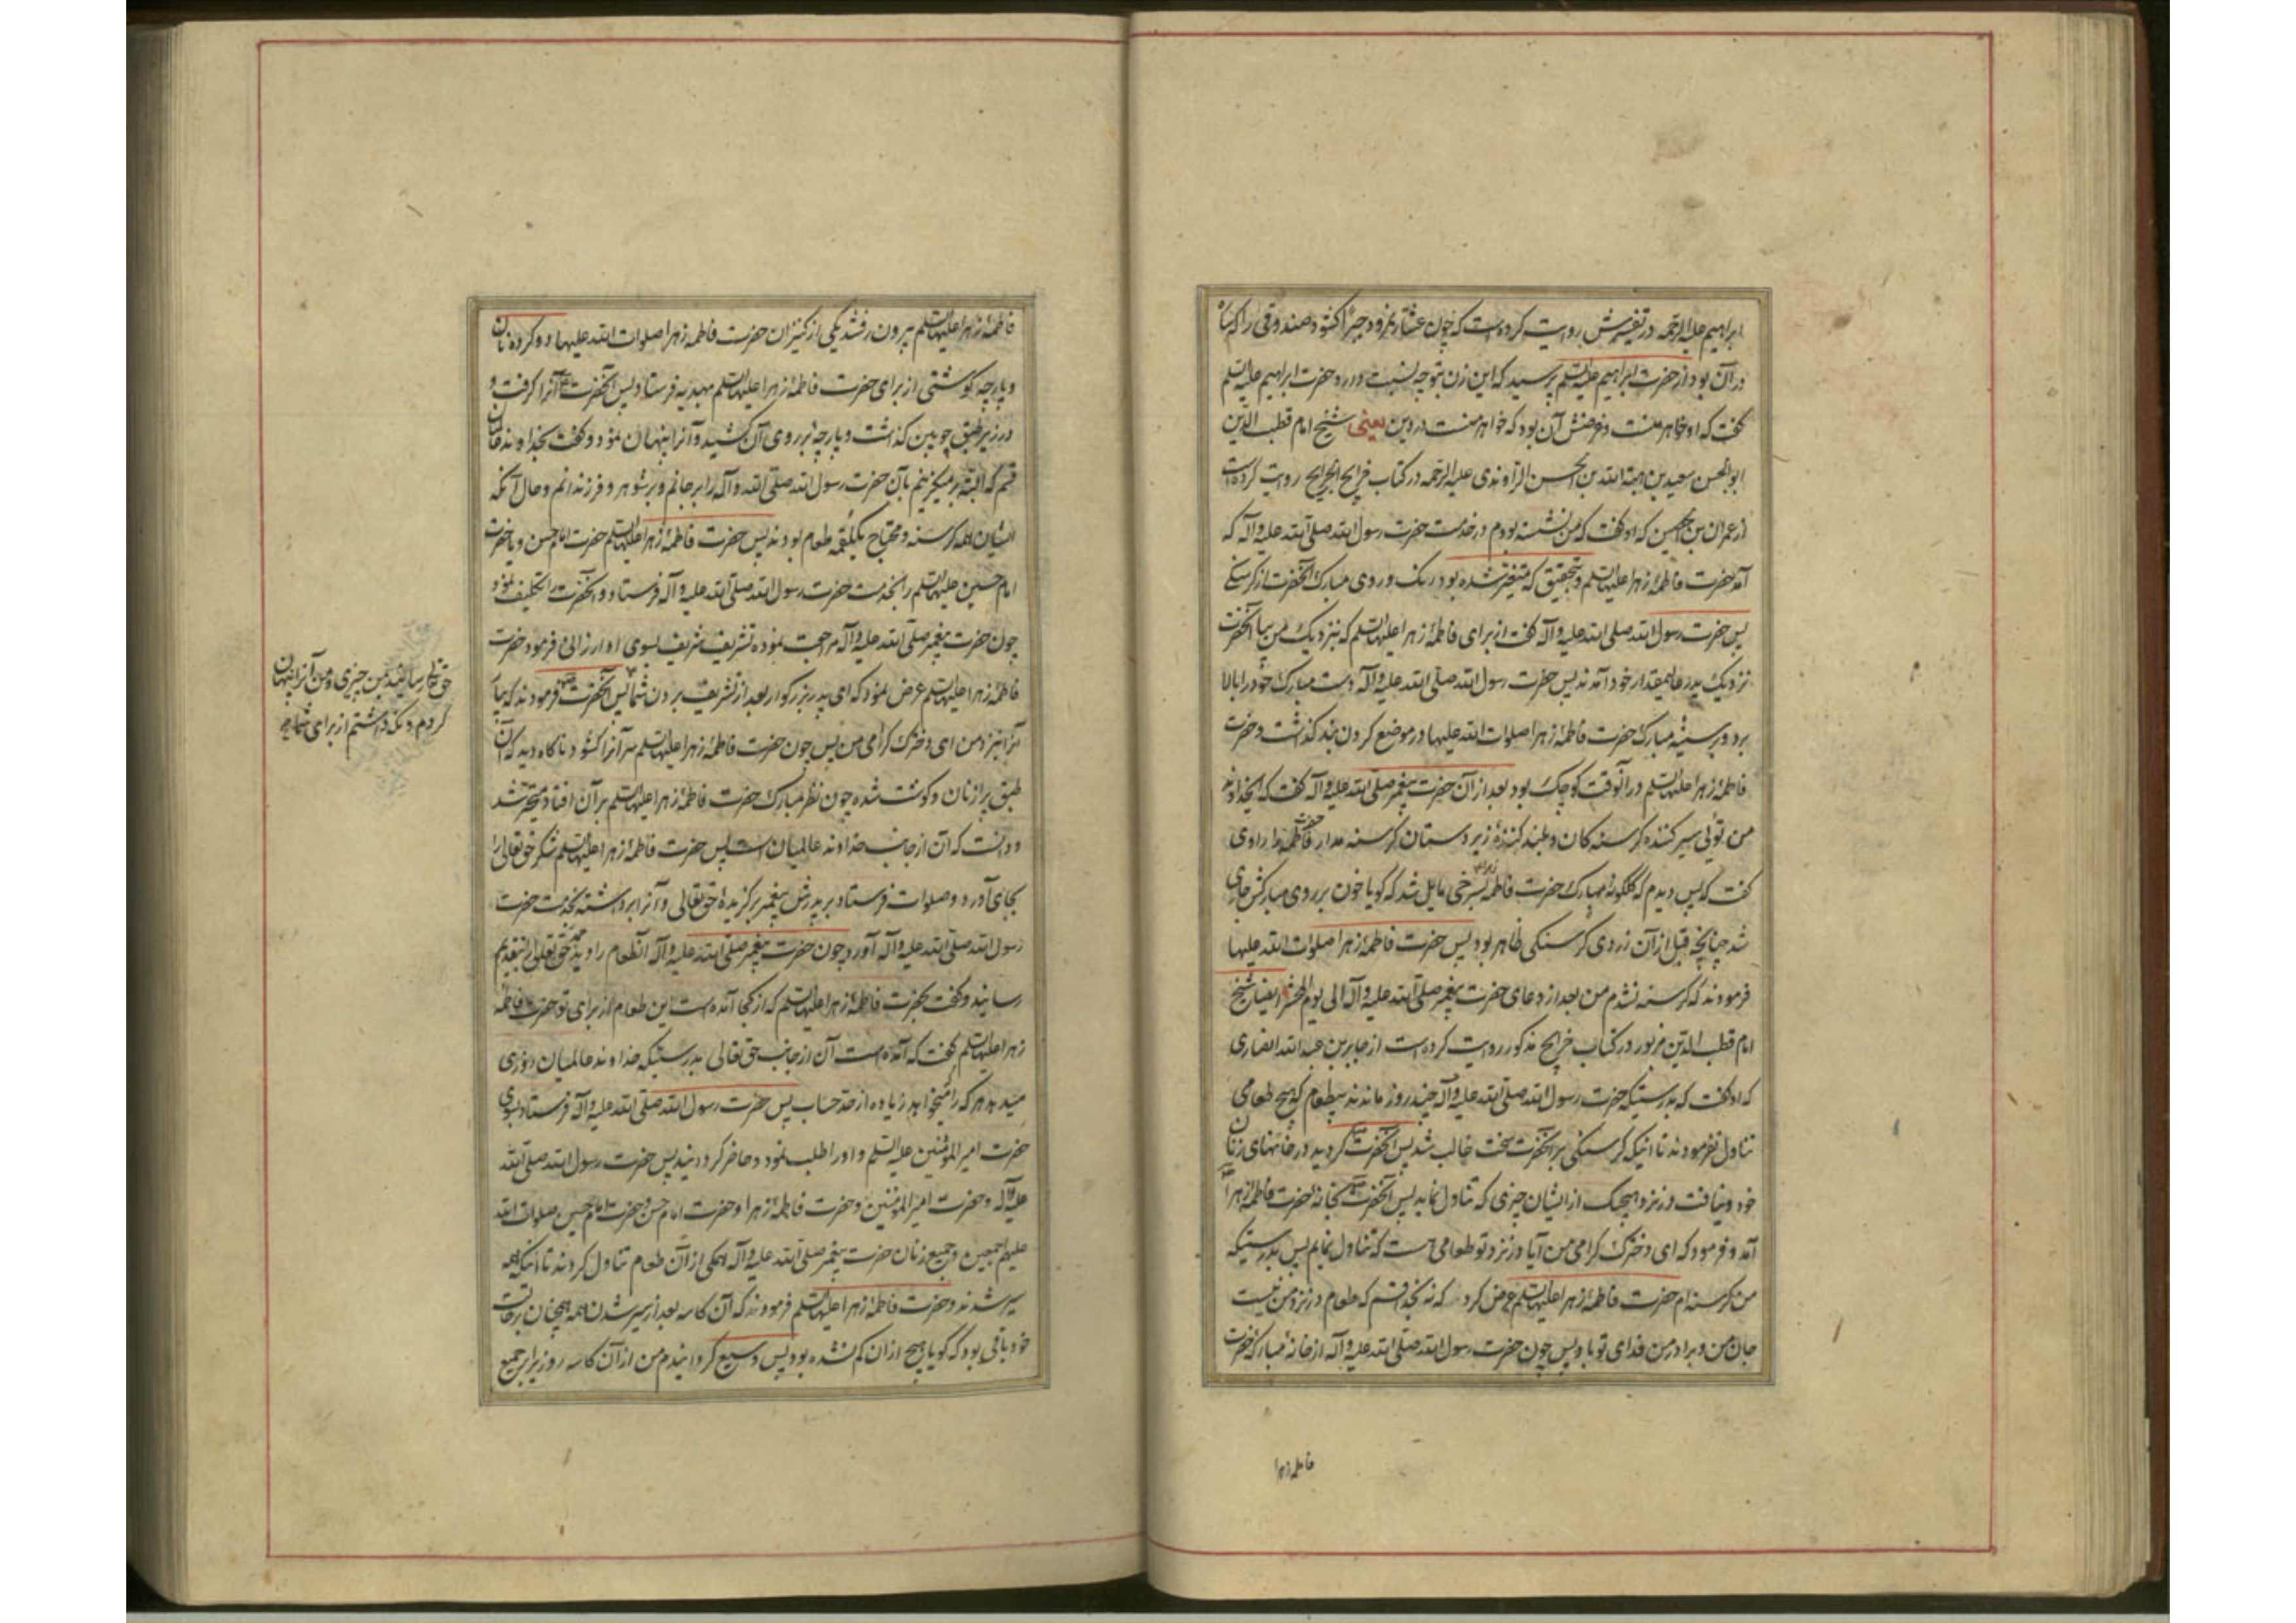 ابراهیم علیه الرحمه در تفسیرش روایت کرده است که چون عشار نمرود جبراً کشود صندوقی را که ساره
در آن بود از حضرت ابراهیم علیه السلم پرسید که این زن بتو چه نسبت دارد حضرت ابراهیم علیه السلم
کفت که او خواهر منست و غرضش آن بود که خواهر منست در دین یعنی شیخ امام قطب الدین
ابوالحسن سعید بن هبة الله بن الحسن الراوندی علیه الرحمه در کتاب خرایج الجرایح روایت کرده است
از عمران بن حصین که او کفت که من نشسته بودم در خدمت حضرت رسول الله صلی الله علیه و آله که
آمد حضرت فاطمهٔ زهرا علیها السلم و بتحقیق که متغیر شده بود رنک و روی مبارک آنحضرت از کرسنکی
پس حضرت رسول الله صلی الله علیه و آله کفت از برای فاطمهٔ زهرا علیها السلم که بنزدیک من بیا آنحضرت
نزدیک پدر عالیمقدار خود آمدند پس حضرت رسول الله صلی الله علیه و آله دست مبارک خود را بالا
برد و بر سینهٔ مبارک حضرت فاطمهٔ زهرا صلوات الله علیها در موضع کردن بند کذاشت و حضرت
فاطمهٔ زهرا علیها السلم در آنوقت کوچک بود بعد از آن حضرت پیغمبر صلی الله علیه و آله کفت که ایخداوند
من توئی سیر کنندهٔ کرسنه کان و بلند کنندهٔ زیردستان کرسنه مدار حضرت فاطمه را راوی
کفت که پس دیدم که کلکونهٔ مبارک حضرت فاطمه زهرا بسرخی مایل شد که کویا خون بر روی مبارکش جاری
شد چنانچه قبل از آن زردی کرسنکی ظاهر بود پس حضرت فاطمهٔ زهرا صلوات الله علیها
فرمودند که کرسنه نشدم من بعد از دعای حضرت پیغمبر صلی الله علیه و آله الی یوم الحشر ایضا شیخ
امام قطب الدین مزبور در کتاب خرایج مذکور روایت کرده است از جابر بن عبدالله انصاری
که او کفت که بدرستیکه حضرت رسول الله صلی الله علیه و آله چند روز ماندند بیطعام که هیچ طعامی
تناول نفرمودند تا اینکه کرسنکی بر آنحضرت سخت غالب شد پس آنحضرت کردید در خانهای زنان
خود و نیافت در نزد هیچیک از ایشان چیزی که تناول نماید پس آنحضرت بخانهٔ حضرت فاطمهٔ زهرا
آمد و فرمود که ای دخترک کرامی من آیا در نزد تو طعامی هست که تناول نمایم پس بدرستیکه
من کرسنه ام حضرت فاطمهٔ زهرا علیها السلم عرض کرد که نه بخدا قسم که طعام در نزد من نیست
جان من و برادر من فدای تو باد پس چون حضرت رسول الله صلی الله علیه و آله از خانهٔ مبارک حضرت
فاطمهٔ زهرا
فاطمهٔ زهرا علیها السلم بیرون رفتند یکی از کنیزان حضرت فاطمه زهرا صلوات الله علیها دو کرده نان
و پارچه کوشتی از برای حضرت فاطمهٔ زهرا علیها السلم بهدیه فرستاد پس آنحضرت آنرا کرفت و
در زیر طبق چوبین کذاشت و پارچهٔ بر روی آن کشید و آنرا پنهان نمود و کفت بخداوند
قسم که البته برمیکزینم بآن حضرت رسول الله صلی الله و آله را بر جانم و بر شوهر و فرزندانم و حال آنکه
ایشان همه کرسنه و محتاج بیکلقمه طعام بودند پس حضرت فاطمهٔ زهرا علیها السلم حضرت امام حسن و یا حضرت
امام حسین علیهما السلم را بخدمت حضرت رسول الله صلی الله علیه و آله فرستاد و آنحضرت را تکلیف نمود
چون حضرت پیغمبر صلی الله علیه و آله مراجعت نموده تشریف شریف بسوی او ارزانی فرمود حضرت
فاطمهٔ زهرا علیها السلم عرض نمود که ای پدر بزرکوار بعد از تشریف بردن شما پس آنحضرت فرمودند که بیار
آنرا بنزد من ای دخترک کرامی من پس چون حضرت فاطمهٔ زهرا علیها السلم سر آنرا کشود ناکاه دید که آن
طبق پر از نان و کوشت شده چون نظر مبارک حضرت فاطمهٔ زهرا علیها السلم بر آن افتاد متحیر شد
و دانست که آن از جانب خداوند عالمیان است پس حضرت فاطمهٔ زهرا علیها السلم شکر حق تعالی را
بجای آورد و صلوات فرستاد بر پدرش پیغمبر برکزیدهٔ حق تعالی و آنرا برداشته بخدمت حضرت
رسول الله صلی الله علیه و آله آورد چون حضرت پیغمبر صلی الله علیه و آله آنطعام را دید حمد حق تعالی را بتقدیم
رسانید و کفت بحضرت فاطمهٔ زهرا علیها السلم که از کجا آمده است این طعام از برای تو حضرت فاطمه
زهرا علیها السلم کفت که آمده است آن از جانب حق تعالی بدرستیکه خداوند عالمیان روزی
میدهد هر که را میخواهد زیاده از حد حساب پس حضرت رسول الله صلی الله علیه و آله فرستاد بسوی
حضرت امیر المؤمنین علیه السلم و او را طلب نمود و حاضر کردانید پس حضرت رسول الله صلی الله
علیه و آله و حضرت امیر المؤمنین و حضرت فاطمهٔ زهرا و حضرت امام حسن و حضرت امام حسین صلوات الله
علیهم اجمعین و جمیع زنان حضرت پیغمبر صلی الله علیه و آله همکی از آن طعام تناول کردند تا اینکه همه
سیر شدند و حضرت فاطمهٔ زهرا علیها السلم فرمودند که آن کاسه بعد از سیر شدن همه همچنان بر حالت
خود باقی بود که کویا هیچ از آن کم نشده بود پس وسیع کردانیدم من از آن کاسه روزی را بر جمیع
حق تعالی رسانید بمن چیزی و من آنرا پنهان
کردم و نکه داشتم از برای شما